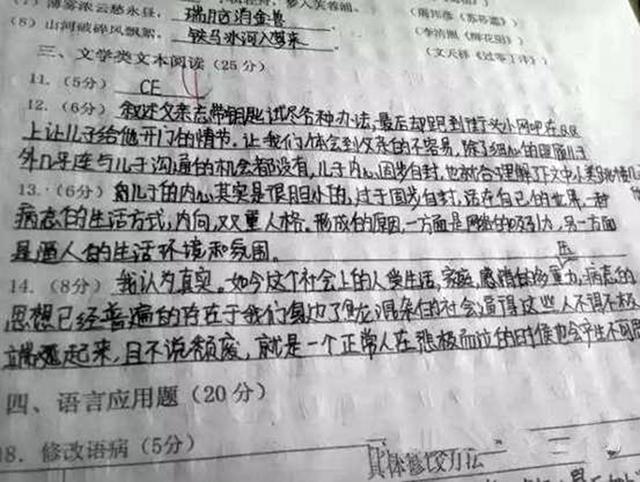 (7) 薄雾浓云愁永昼, 瑞脑消金兽 (李清照《醉花阴》)
(8) 山河破碎风飘絮, 铁马冰河入梦来 (文天祥《过零丁洋》)
三、文学类文本阅读 (25分)
11. (5分) CE
12. (6分) 叙述父亲忘带钥匙试尽各种办法,最后却跑到街头小网吧在QQ
上让儿子给他开门的情节。让我们体会到父亲的不容易,除了细心的照顾儿子
外几乎连与儿子沟通的机会都没有,儿子内心固步自封,也就合理解了下文中
13. (6分) 儿子的内心其实是很胆小的,过于固步自封,活在自己的世界,一种
病态的生活方式,内向,双重人格。形成的原因,一方面是网络的吸引力,另一方面
是逼人的生活环境和氛围。 压
14. (8分) 我认为真实。如今这个社会上的人受生活,家庭,感情的多重压力,病态的
思想已经普遍的存在于我们身边了 混杂的社会逼得这些人不得不极
端 起来,且不说颓废,就是一个正常人在悲极而泣的时候也会产生不可
四、语言应用题 (20分)
18. 修改语病 (5分) 具体修改方法